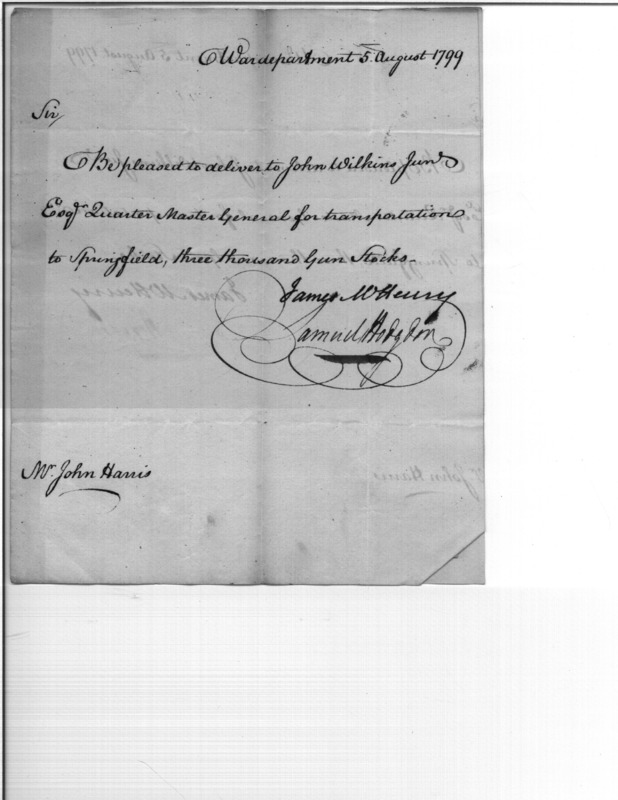 War department 5 August 1799
Sir,
Be pleased to deliver to John Wilkins Junr
Esqr Quarter Master General for transportation
to Springfield, three thousand Gun Stocks.
James McHenry
Samuel Hodgdon
Mr. John Harris